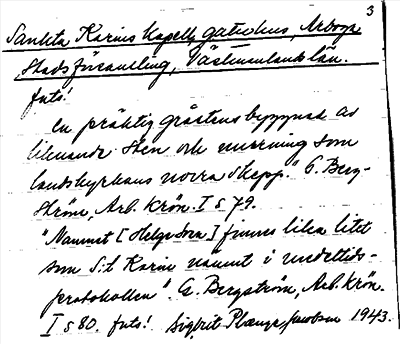 3
Sankta Karins kapell, gatuhus, Arboga
stadsförsamling, Västmanlands län.
forts!
en präktig gråstensbyggnad av
liknande sten och murning som
landskyrkans norra skepp." G. Berg-
ström, Arb. krön. I s 79.
"Namnet [Helge Sven] finnes lika litet
som S:t Karin nämnt i medeltids-
protokollen". G. Bergström, Arb. krön.
I s 80. forts! Sigbrit Plænge Jacobson 1943.